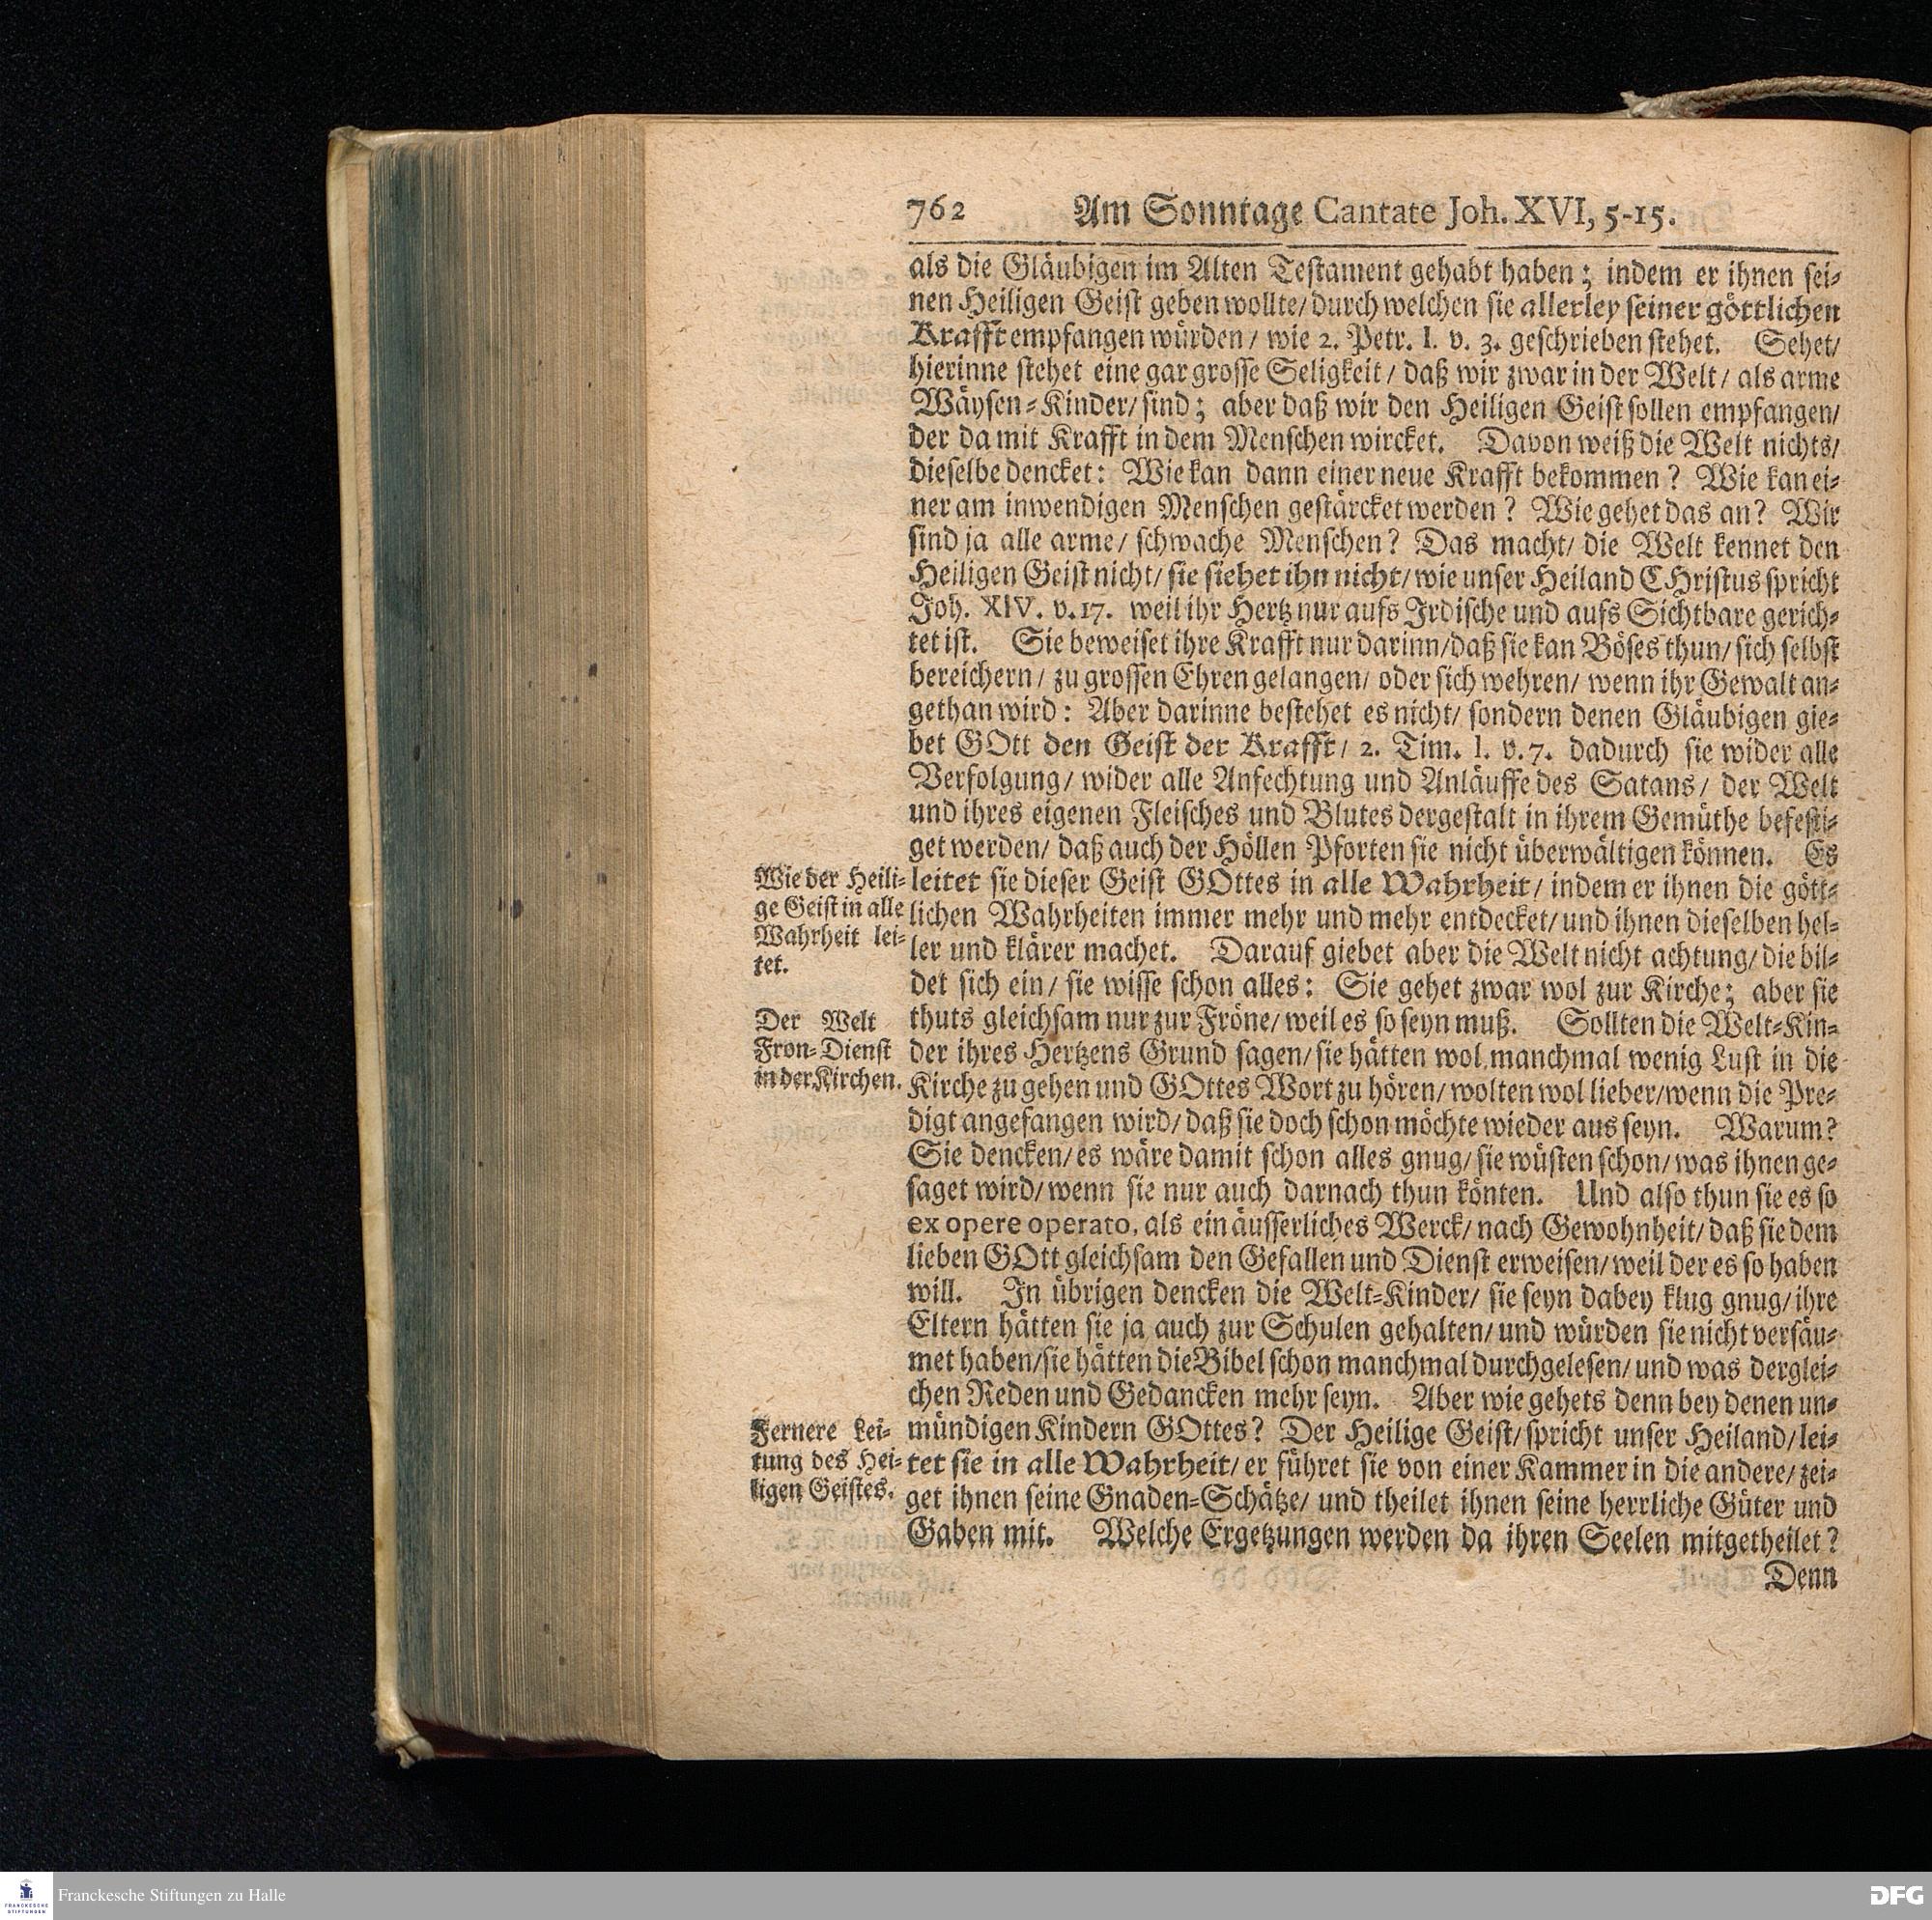 762 Am Sonntage Cantate Joh. XVI, 5-15.
als die Gläubigen im Alten Testament gehabt haben; indem er ihnen sei-
nen Heiligen Geist geben wollte/ durch welchen sie allerley seiner göttlichen
Krafft empfangen würden/ wie 2. Petr. I. v. 3. geschrieben stehet. Sehet/
hierinne stehet eine gar grosse Seligkeit/ daß wir zwar in der Welt/ als arme
Wäysen-Kinder/ sind; aber daß wir den Heiligen Geist sollen empfangen/
der da mit Krafft in dem Menschen wircket. Davon weiß die Welt nichts/
dieselbe dencket: Wie kan dann einer neue Krafft bekommen? Wie kan ei-
ner am inwendigen Menschen gestärcket werden? Wie gehet das an? Wir
sind ja alle arme/ schwache Menschen? Das macht/ die Welt kennet den
Heiligen Geist nicht/ sie siehet ihn nicht/ wie unser Heiland CHristus spricht
Joh. XIV. v. 17. weil ihr Hertz nur aufs Irdische und aufs Sichtbare gerich-
tet ist. Sie beweiset ihre Krafft nur darinn/ daß sie kan Böses thun/ sich selbst
bereichern/ zu grossen Ehren gelangen/ oder sich wehren/ wenn ihr Gewalt an-
gethan wird: Aber darinne bestehet es nicht/ sondern denen Gläubigen gie-
bet GOtt den Geist der Krafft/ 2. Tim. I. v. 7. dadurch sie wider alle
Verfolgung/ wider alle Anfechtung und Anläuffe des Satans/ der Welt
und ihres eigenen Fleisches und Blutes dergestalt in ihrem Gemüthe befesti-
get werden/ daß auch der Höllen Pforten sie nicht überwältigen können. Es
Wie der Heili-
ge Geist in alle
Wahrheit lei-
tet.
leitet sie dieser Geist GOttes in alle Wahrheit/ indem er ihnen die gött-
lichen Wahrheiten immer mehr und mehr entdecket/ und ihnen dieselben hel-
ler und klärer machet. Darauf giebet aber die Welt nicht achtung/ die bil-
det sich ein/ sie wisse schon alles: Sie gehet zwar wol zur Kirche; aber sie
Der Welt
Fron-Dienst
in der Kirchen.
thuts gleichsam nur zur Fröne/ weil es so seyn muß. Sollten die Welt-Kin-
der ihres Hertzens Grund sagen/ sie hätten wol manchmal wenig Lust in die
Kirche zu gehen und GOttes Wort zu hören/ wolten wol lieber/ wenn die Pre-
digt angefangen wird/ daß sie doch schon möchte wieder aus seyn. Warum?
Sie dencken/ es wäre damit schon alles gnug/ sie wüsten schon/ was ihnen ge-
saget wird/ wenn sie nur auch darnach thun könten. Und also thun sie es so
ex opere operato, als ein äusserliches Werck/ nach Gewohnheit/ daß sie dem
lieben GOtt gleichsam den Gefallen und Dienst erweisen/ weil der es so haben
will. In übrigen dencken die Welt-Kinder/ sie seyn dabey klug gnug/ ihre
Eltern hätten sie ja auch zur Schulen gehalten/ und würden sie nicht versäu-
met haben/ sie hätten die Bibel schon manchmal durchgelesen/ und was derglei-
chen Reden und Gedancken mehr seyn. Aber wie gehets denn bey denen un-
Fernere Lei-
tung des Hei-
ligen Geistes.
mündigen Kindern GOttes? Der Heilige Geist/ spricht unser Heiland/ lei-
tet sie in alle Wahrheit/ er führet sie von einer Kammer in die andere/ zei-
get ihnen seine Gnaden-Schätze/ und theilet ihnen seine herrliche Güter und
Gaben mit. Welche Ergetzungen werden da ihren Seelen mitgetheilet?
Denn
FRANCKESCHE
STIFTUNGEN
Franckesche Stiftungen zu Halle
DFG